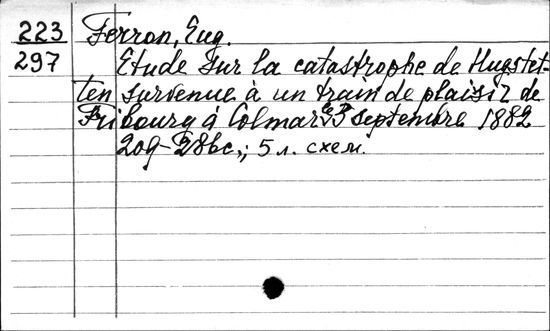 223 Ferron, Eug.
297 Etude sur la catastrophe de Hugstet-
ten survenue à un train de plaisir de
Fribourg à Colmar septembre 1882
5 л. схем.